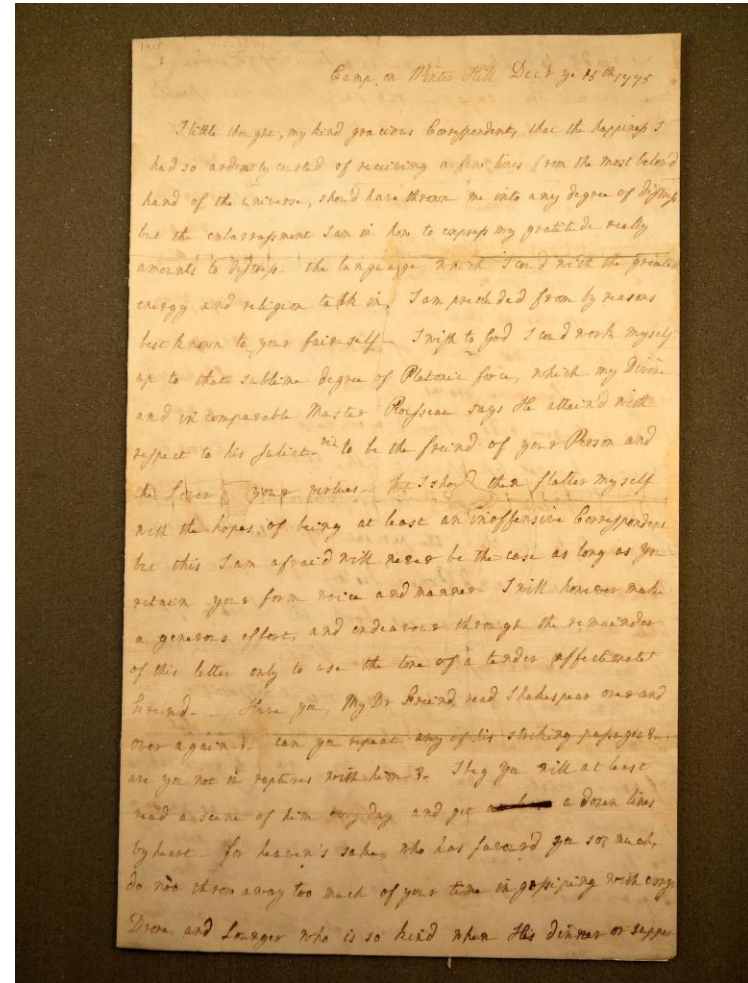 Camp on Winter Hill Dec'r ye 15th 1775
I little thought, my kind gracious Correspondent, that the happiness I
had so ardently courted of receiving a few lines from the most belov'd
hand of the universe, shou'd have thrown me into any degree of distress
but the embarrassment I am in how to express my gratitude really
amounts to distress - the language which I cou'd with the greatest
energy and religion talk in, I am precluded from by reasons
best known to your fair self - I wish to God I cou'd work myself
up to that sublime degree of Platonic force, which my Divine
and incomparable Master Rousseau says He attain'd with
respect to his Juliet - viz to be the freind of your Person and
the Lover of your virtues - I shou'd then flatter myself
with the hopes of being at least an inoffensive Correspondent
but this I am afraid will never be the case as long as you
retain your form voice and manner I will however make
a generous effort, and endeavour through the remainder
of this letter only to use the tone of a tender affectionate
freind - Have you, My Dr Freind, read Shakespear over and
over again? can you repeat any of his striking passages?
are you not in raptures with him? I beg you will at least
read a scene of him every day and get a dozen lines
by heart - for heaven's sake, who has favour'd you so much,
do not throw away too much of your time in gossiping with every
Drone and Lounger who is so kind when His dinner or supper